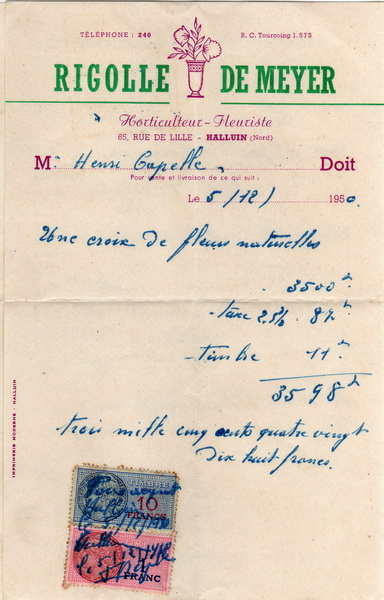 TÉLÉPHONE : 240 R. C. Tourcoing 1.575
RIGOLLE DE MEYER
Horticulteur-Fleuriste
65, RUE DE LILLE - HALLUIN (Nord)
M. Henri Capelle Doit
Pour vente et livraison de ce qui suit :
Le 5/12/ 1950
Une croix de fleurs naturelles
3500
taxe 2.5% 87
timbre 11
3598
trois mille cinq cents quatre vingt
dix huit francs.
IMPRIMERIE MODERNE - HALLUIN
TIMBRE
10
FRANCS
1
FRANC